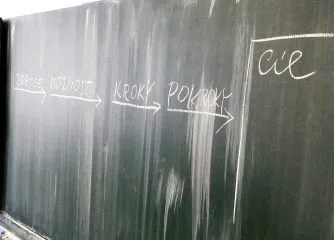 ZDROJE MOŽNOSTI KROKY POKROKY
CIE